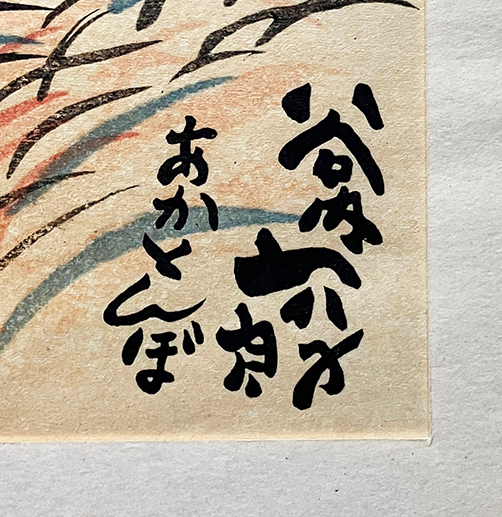 谷内六郎
あかとんぼ